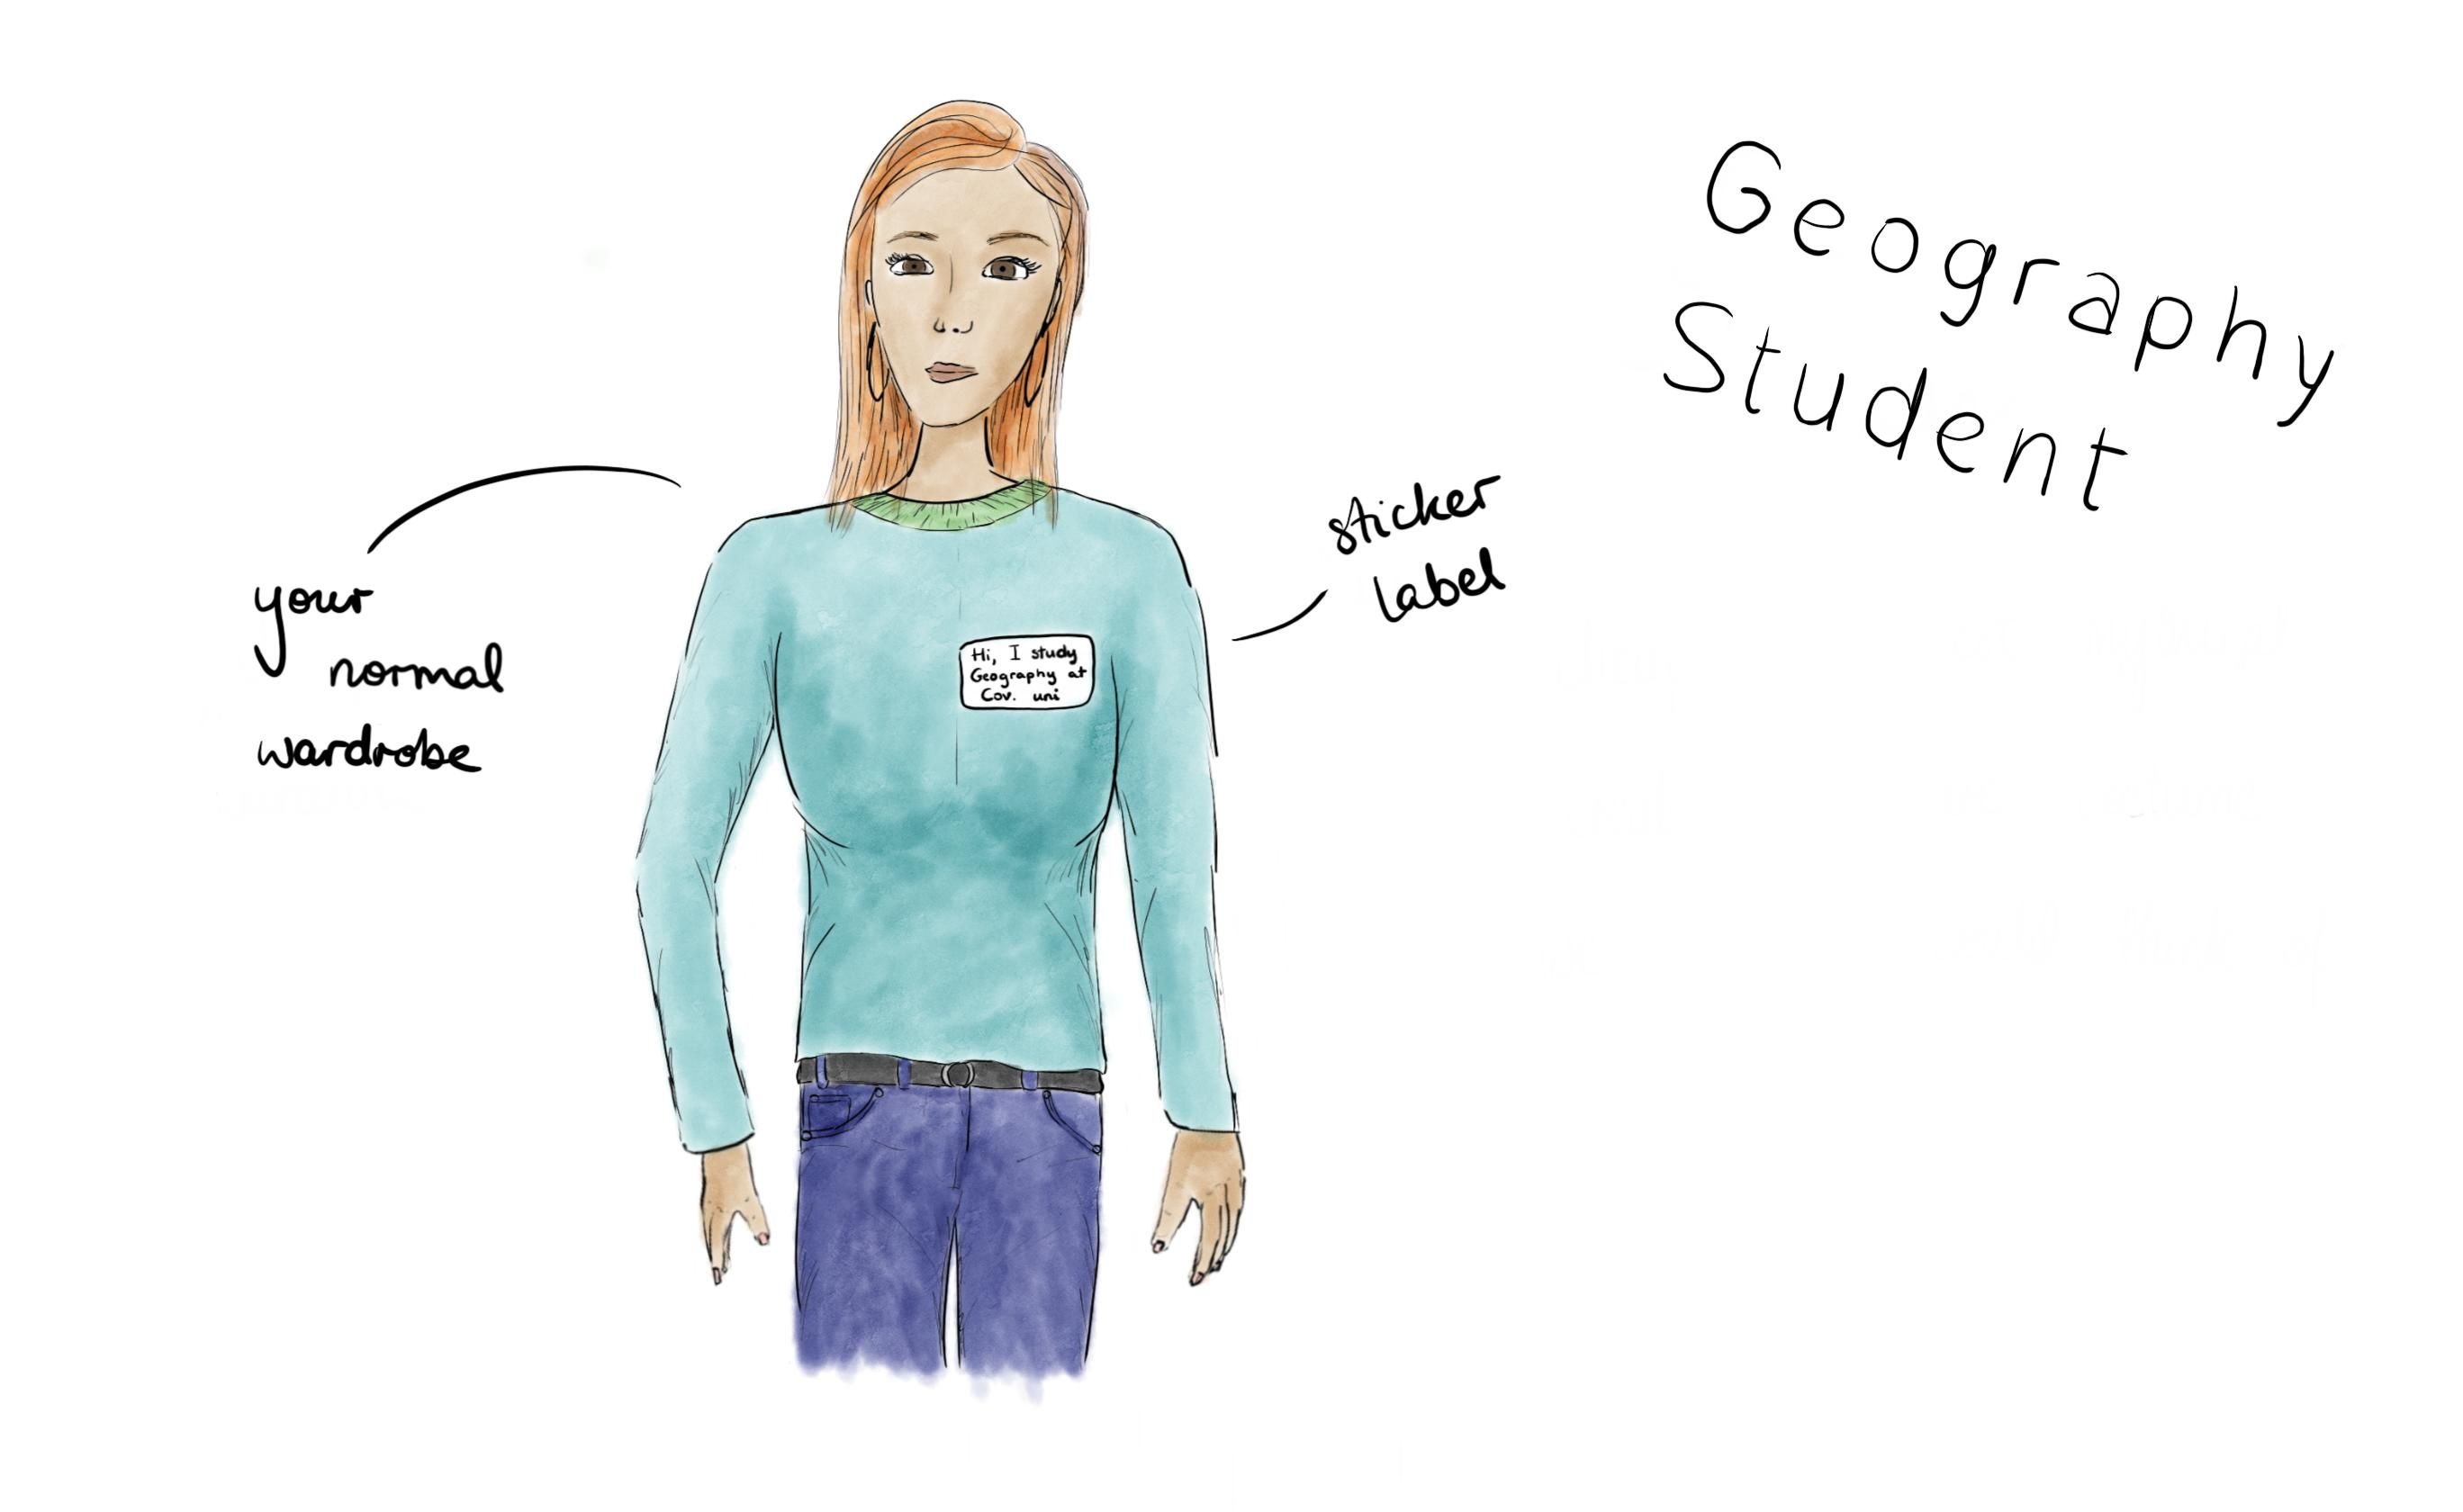 Geography
Student
your
normal
wardrobe
sticker
label
Hi, I study
Geography at
Cov. uni